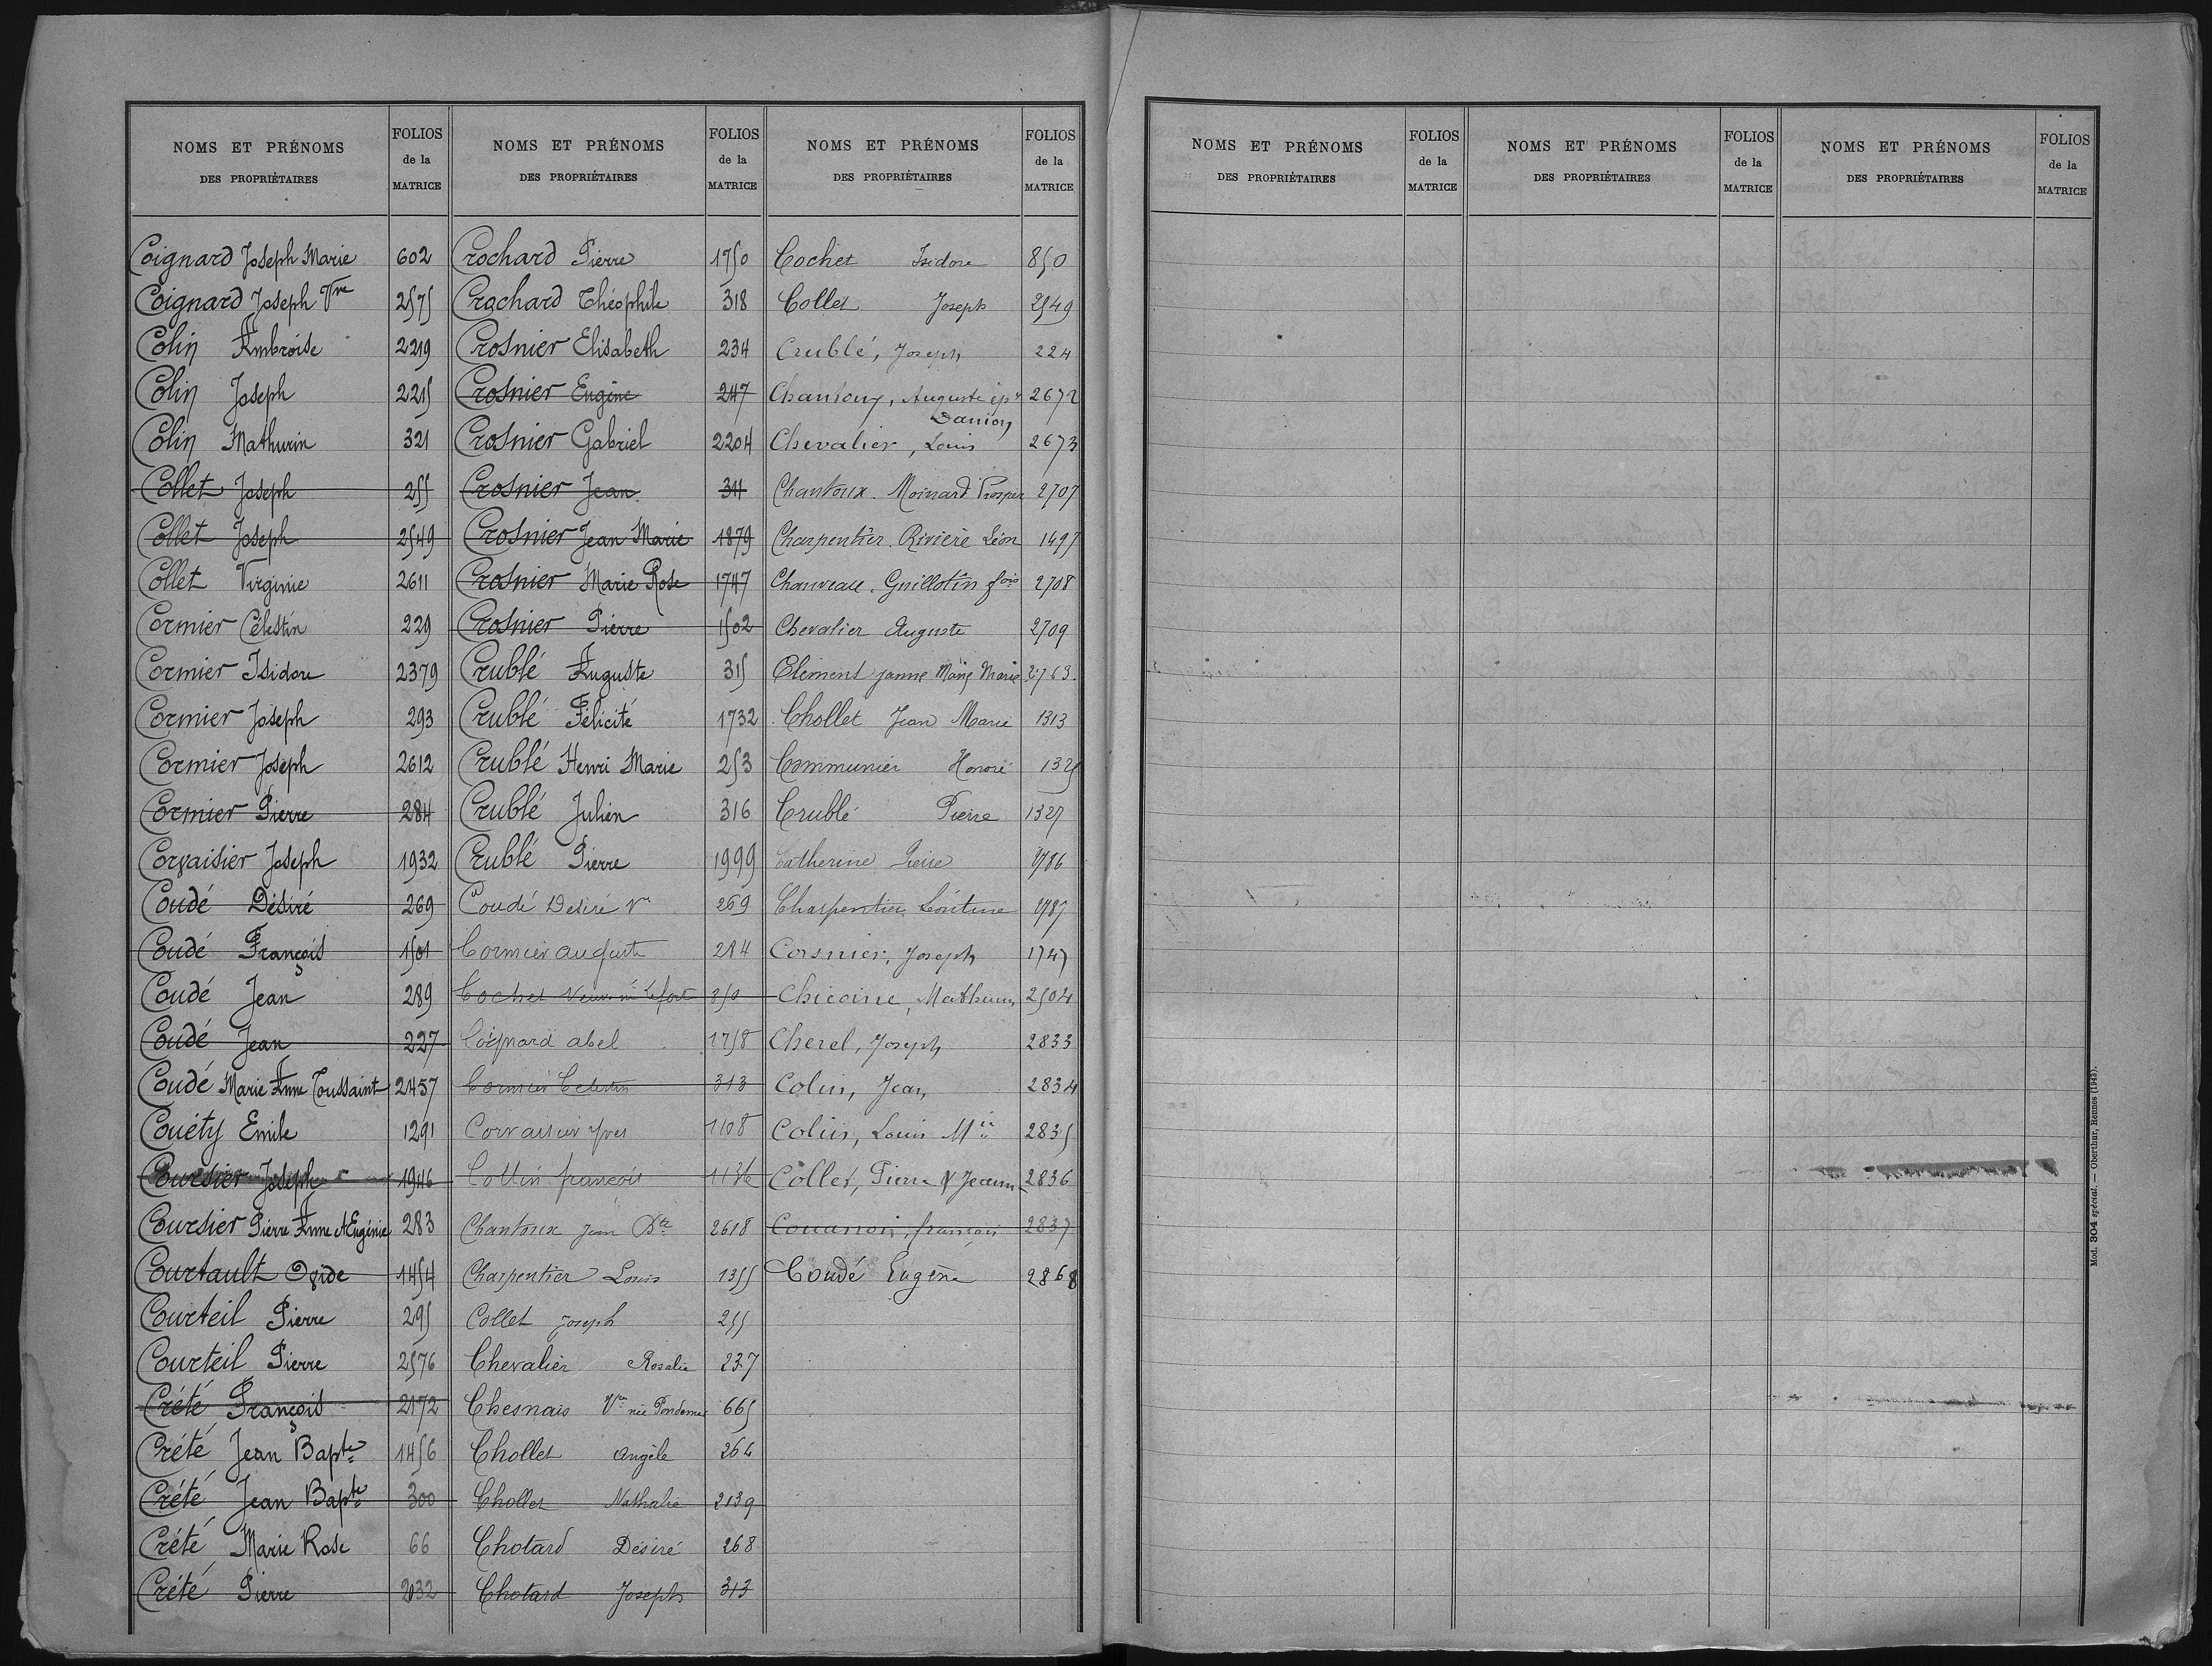 NOMS ET PRÉNOMS
DES PROPRIÉTAIRES
FOLIOS
de la
MATRICE
Coignard Joseph Marie 602
Coignard Joseph Vve 2575
Colin Ambroise 2219
Colin Joseph 2215
Colin Mathurin 321
Collet Joseph 255
Collet Joseph 2549
Collet Virginie 2611
Cormier Célestin 229
Cormier Isidore 2379
Cormier Joseph 293
Cormier Joseph 2612
Cormier Pierre 284
Corvaisier Joseph 1932
Coudé Désiré 269
Coudé François 1501
Coudé Jean 289
Coudé Jean 227
Coudé Marie Anne Toussaint 2457
Couéty Emile 1291
Coursier Joseph 1946
Coursier Pierre Anne & Eugénie 283
Courtault Ovide 1454
Courteil Pierre 295
Courteil Pierre 2576
Crété François 2172
Crété Jean Bapte 1456
Crété Jean Bapte 300
Crété Marie Rose 66
Crété Pierre 2032
NOMS ET PRÉNOMS
DES PROPRIÉTAIRES
FOLIOS
de la
MATRICE
Crochard Pierre 1750
Crochard Théophile 318
Crosnier Elisabeth 234
Crosnier Eugène 247
Crosnier Gabriel 2204
Crosnier Jean 311
Crosnier Jean Marie 1879
Crosnier Marie Rose 1747
Crosnier Pierre 1502
Crublé Auguste 315
Crublé Félicité 1732
Crublé Henri Marie 253
Crublé Julien 316
Crublé Pierre 1999
Coudé Desiré Ve 269
Cormier auguste 284
Cochet Veuve née Lefort 850
Coignard abel 1758
Cormier Celestin 313
Corvaisier Yves 1108
Collin françois 1136
Chantoux Jean Bte 2618
Charpentier Louis 1355
Collet Joseph 255
Chevalier Rosalie 237
Chesnais Vve née 665
Chollet Angèle 264
Chollet Nathalie 2139
Chotard Désiré 268
Chotard Joseph 313
NOMS ET PRÉNOMS
DES PROPRIÉTAIRES
FOLIOS
de la
MATRICE
Cochet Isidore 850
Collet Joseph 2549
Crublé, Joseph 224
Chantoux, Auguste épx 2672
Danion
Chevalier, Louis 2673
Chantoux. Moinard Prosper 2707
Charpentier. Rivière Léon 1497
Chauveau. Guillotin fois 2708
Chevalier Auguste 2709
Clément Marie 2763
Chollet Jean Marie 1313
Communier Honoré 1325
Crublé Pierre 1327
Catherine Pierre 2786
Charpentier 2787
Corsnier, Joseph 1747
Chicoine, Mathurin 2504
Cherel, Joseph 2833
Colin, Jean 2834
Colin, Louis Mie 2835
Collet, Pierre & Jeanne 2836
Couanon, françois 2837
Coudé Eugène 2868
NOMS ET PRÉNOMS
DES PROPRIÉTAIRES
FOLIOS
de la
MATRICE
NOMS ET PRÉNOMS
DES PROPRIÉTAIRES
FOLIOS
de la
MATRICE
NOMS ET PRÉNOMS
DES PROPRIÉTAIRES
FOLIOS
de la
MATRICE
Mod. 304 spécial. — Oberthur, Rennes (1943).